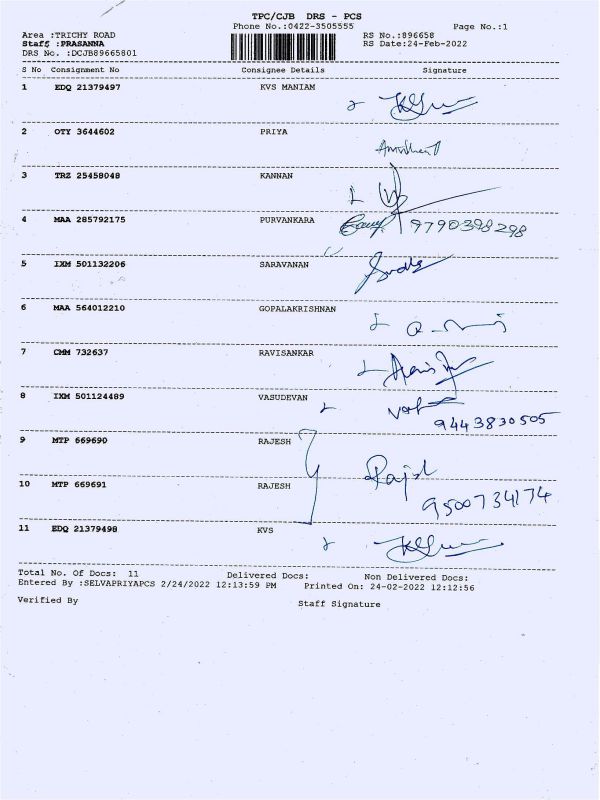 TPC/CJB DRS - PCS
Phone No.:0422-3505555 Page No.:1
Area :TRICHY ROAD RS No.:896658
Staff :PRASANNA RS Date:24-Feb-2022
DRS No. :DCJB89665801
S No Consignment No Consignee Details Signature
1 EDQ 21379497 KVS MANIAM
2 OTY 3644602 PRIYA
3 TRZ 25458048 KANNAN
4 MAA 285792175 PURVANKARA 9790398298
5 IXM 501132206 SARAVANAN
6 MAA 564012210 GOPALAKRISHNAN
7 CMM 732637 RAVISANKAR
8 IXM 501124489 VASUDEVAN
9443830505
9 MTP 669690 RAJESH
10 MTP 669691 RAJESH 9500734174
11 EDQ 21379498 KVS
Total No. Of Docs: 11 Delivered Docs: Non Delivered Docs:
Entered By :SELVAPRIYAPCS 2/24/2022 12:13:59 PM Printed On: 24-02-2022 12:12:56
Verified By Staff Signature